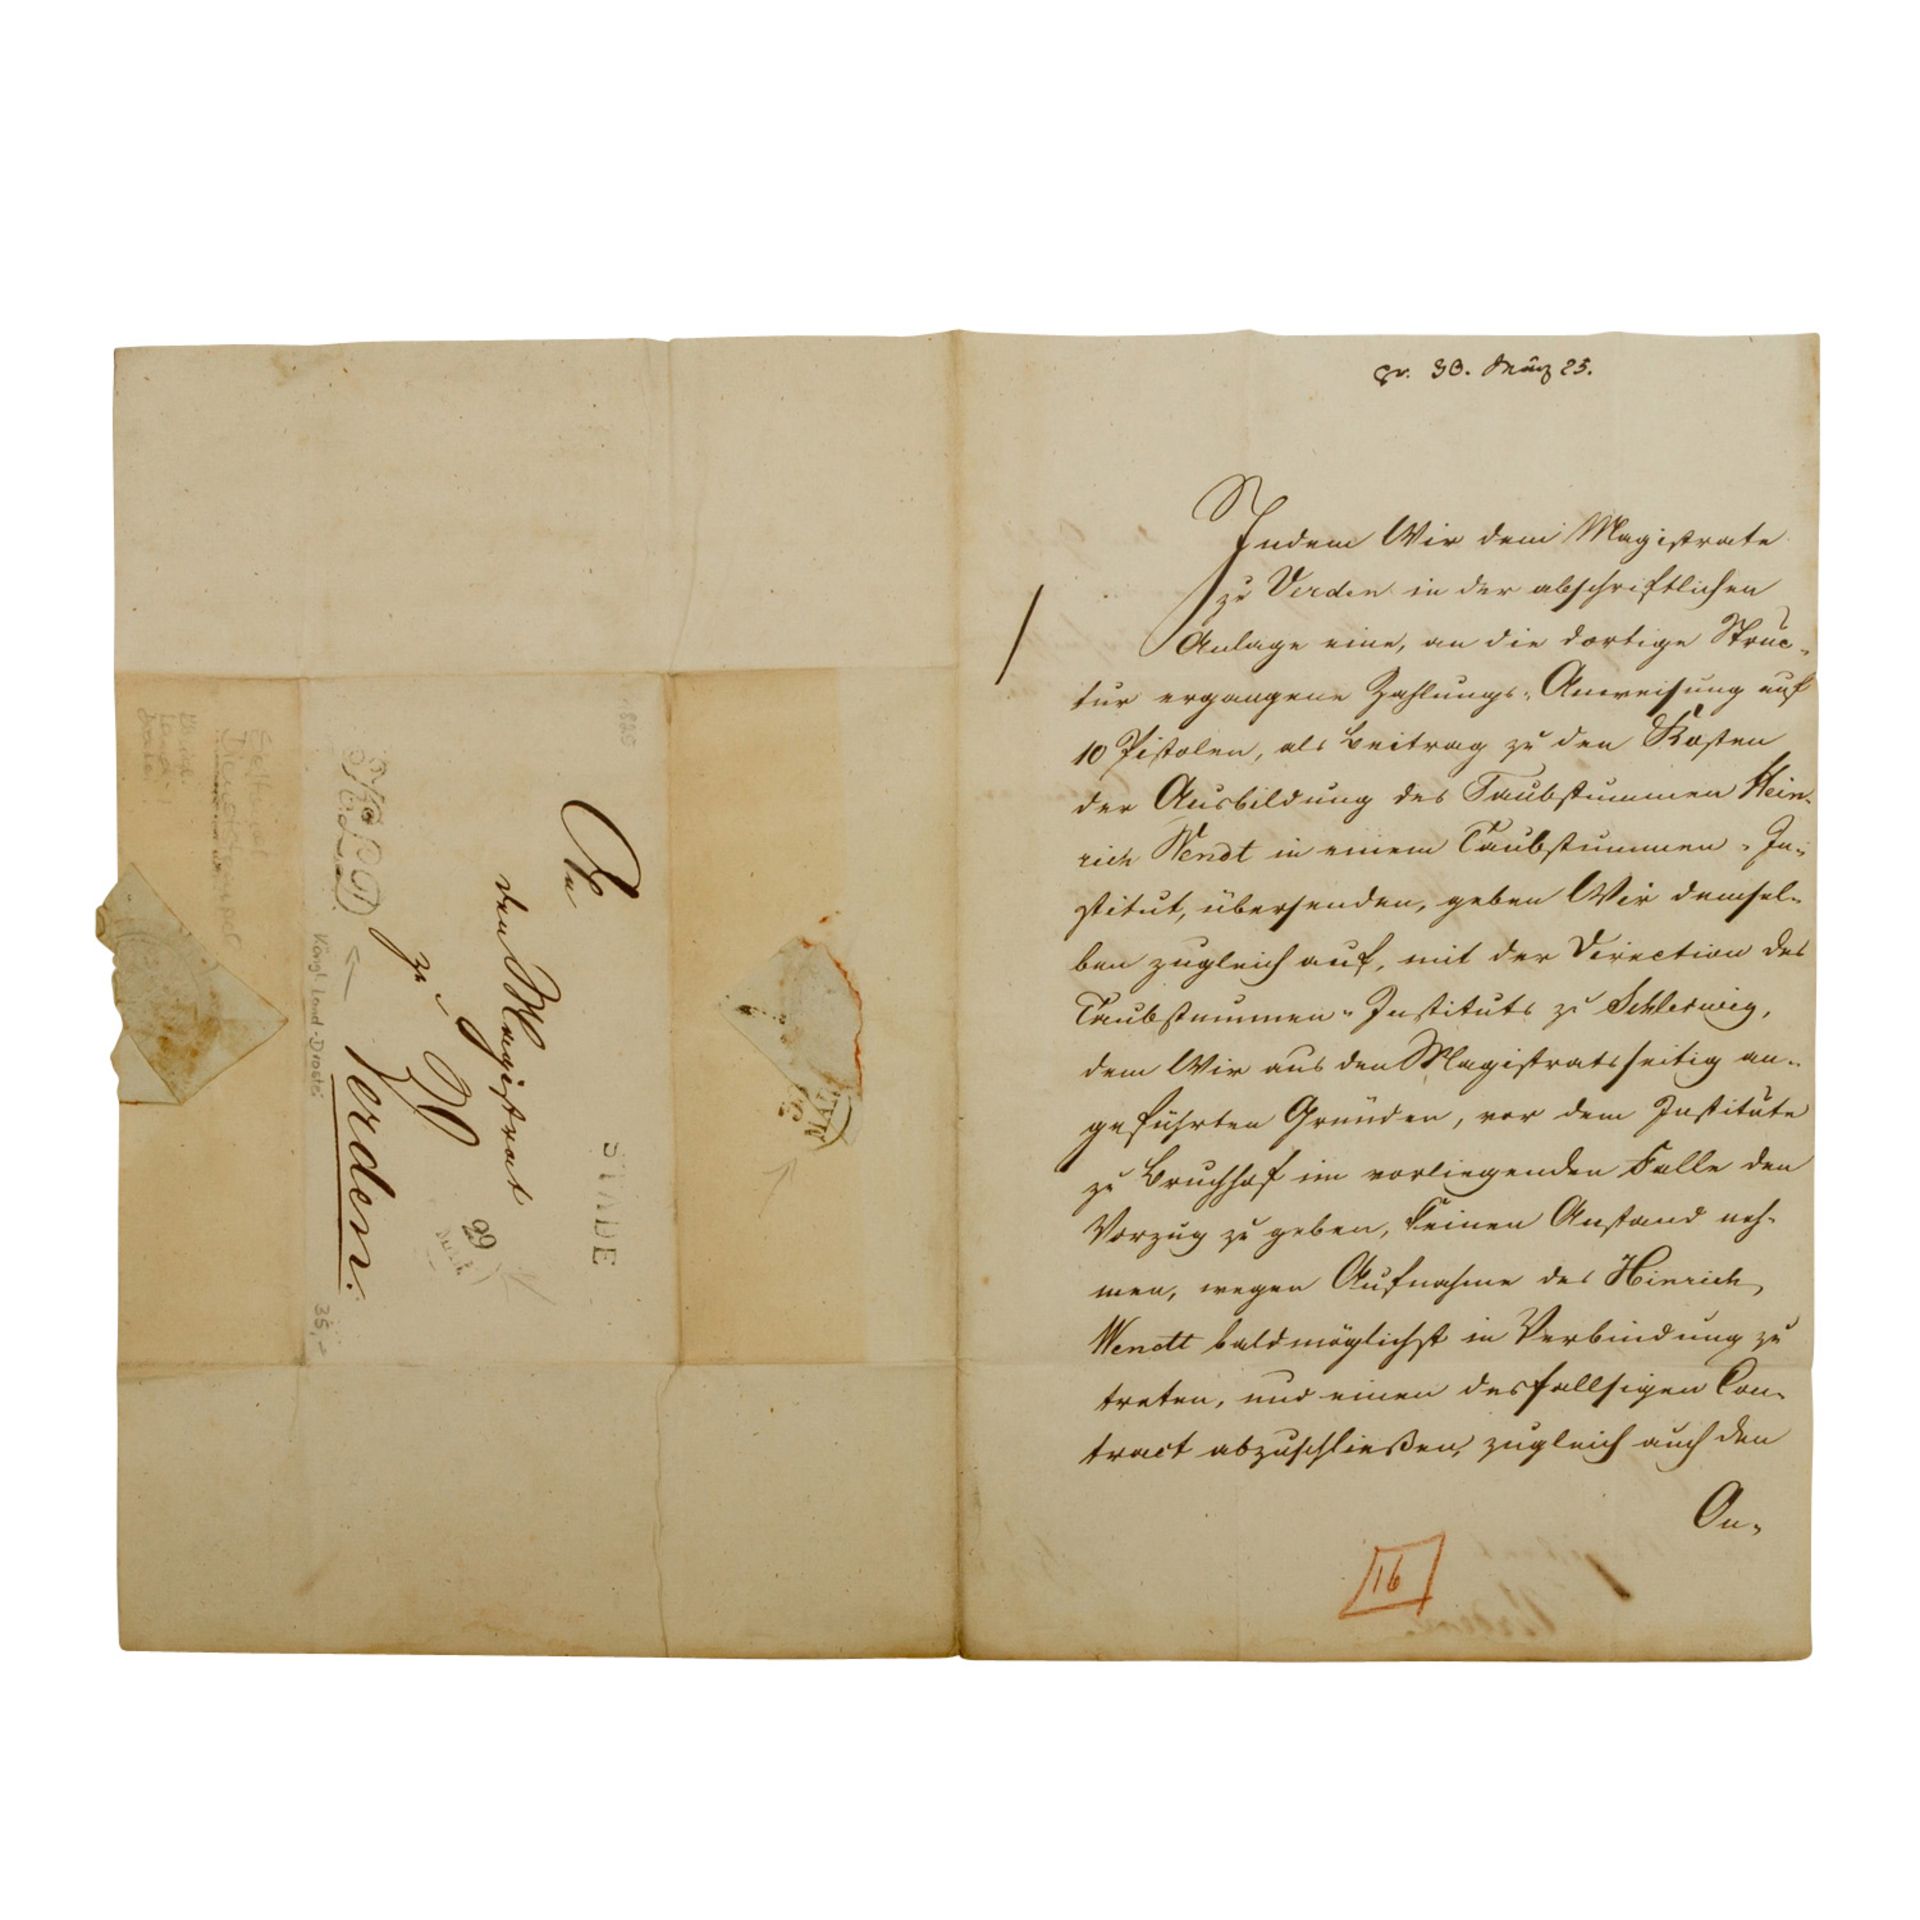 pr. 30. März 25.
Indem Wir dem Magistrate
zu Verden in der abschriftlichen
Anlage eine, an die dortige Struc-
tur ergangene Zahlungs-Anweisung auf
10 Pistolen, als Beitrag zu den Kosten
der Ausbildung des Taubstummen Hein-
rich Wendt in einem Taubstummen-In-
stitut, übersenden, geben Wir demsel-
ben zugleich auf, mit der Direction des
Taubstummen-Instituts zu Schleswig,
dem Wir aus den Magistratsseitig an-
geführten Gründen, vor dem Institute
zu Bruchhof im vorliegenden Falle den
Vorzug zu geben, keinen Anstand neh-
men, wegen Aufnahme des Hinrich
Wendt baldmöglichst in Verbindung zu
treten, und einen desfallsigen Con-
tract abzuschließen, zugleich auch den
An-
16
1825
STADE
An
den Magistrat
zu
Verden.
29
Königl. Land-Drostei
35,-